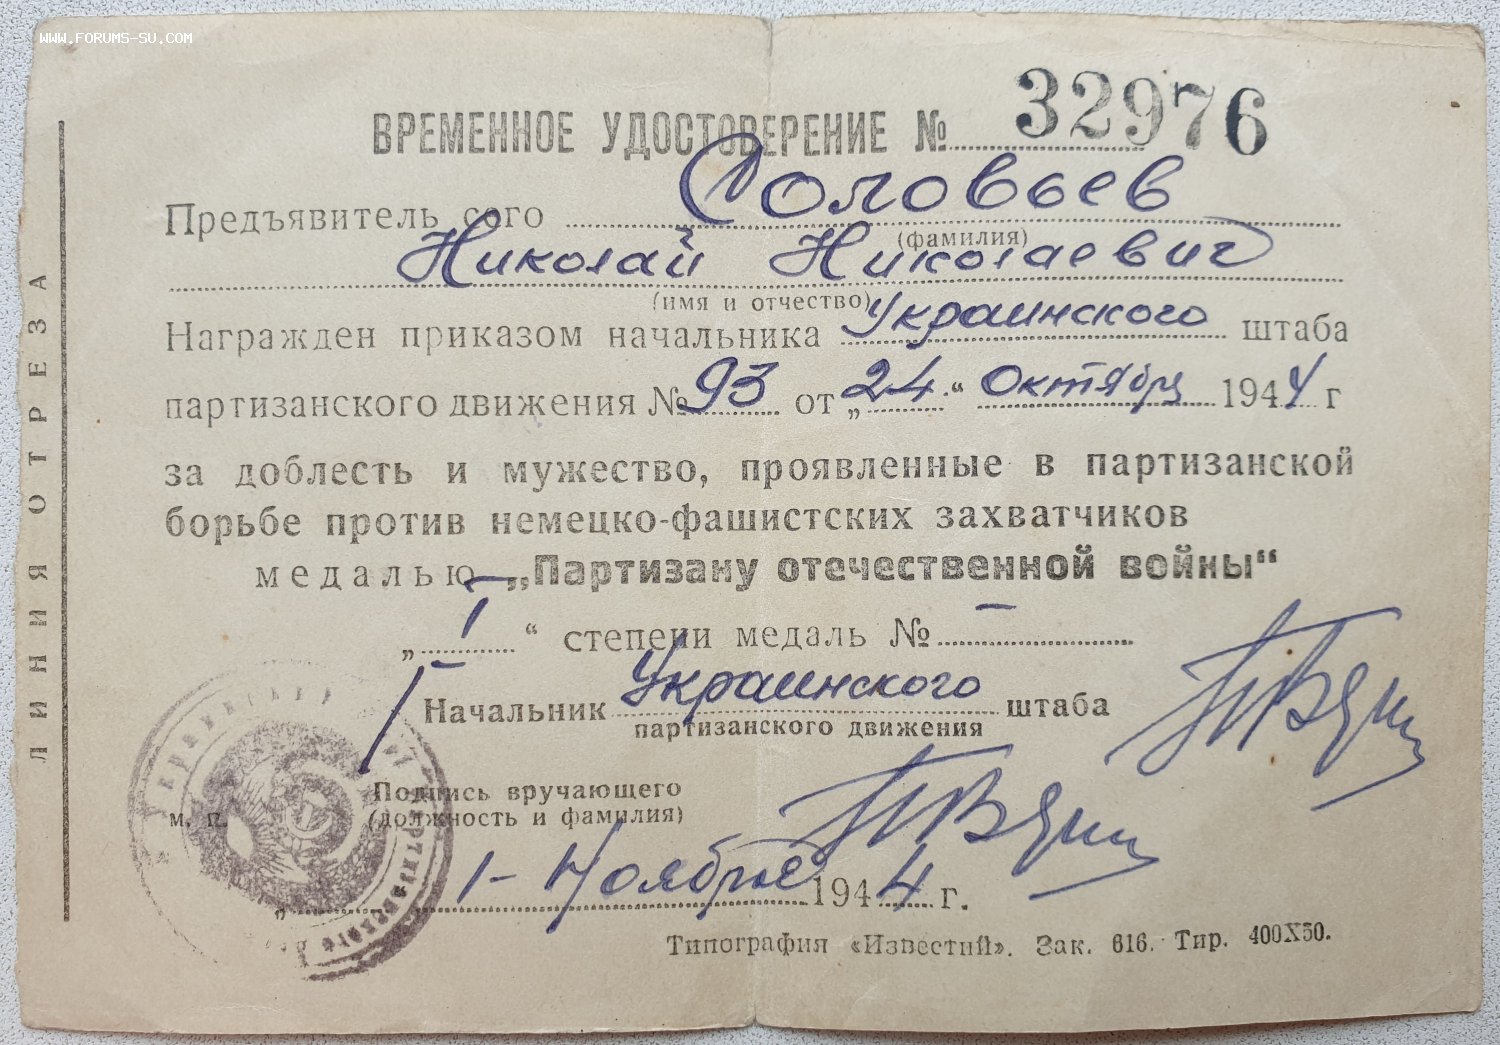 WWW.FORUMS-SU.COM
ВРЕМЕННОЕ УДОСТОВЕРЕНИЕ № 32976
Предъявитель сего Соловьев
(фамилия)
Николай Николаевич
(имя и отчество)
Награжден приказом начальника Украинского штаба
партизанского движения № 93 от „24“ Октября 1944 г
за доблесть и мужество, проявленные в партизанской
борьбе против немецко-фашистских захватчиков
медалью „Партизану отечественной войны“
„I“ степени медаль № –
Начальник Украинского штаба
партизанского движения
Подпись вручающего
(должность и фамилия)
м. п.
1 - Ноября 1944 г.
Типография «Известий». Зак. 616. Тир. 400Х50.
ЛИНИЯ ОТРЕЗА